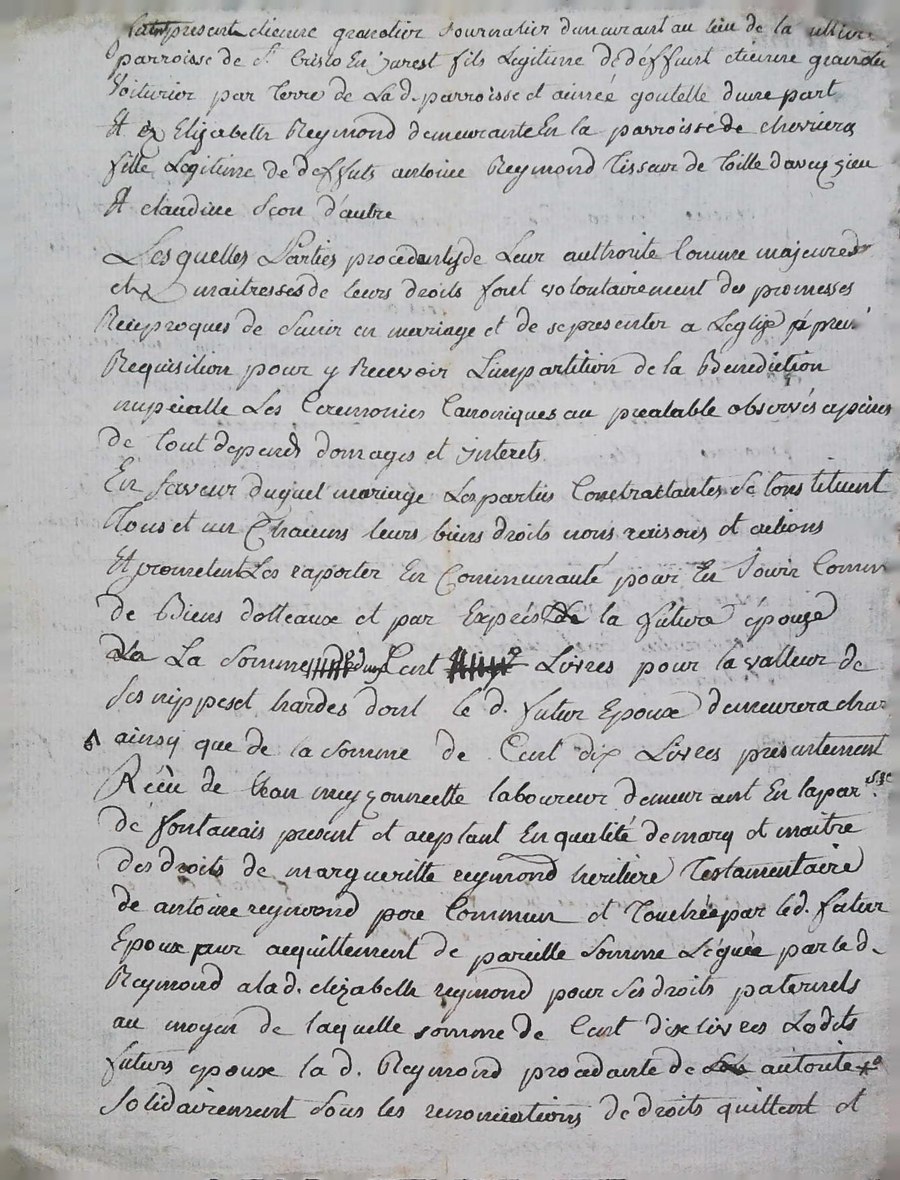 present etienne grandier Journalier demeurant au lieu de la
parroisse de St Cristo En Jarest fils Legitime de deffunt etienne grandier
Voiturier par Terre de La d. parroisse et aimée goutelle d'une part
Et Elizabeth Reymond demeurante En la parroisse de chevrieres
fille Legitime de deffuts antoine Reymond Tisseur de Toille d'aveyzieu
Et claudine d'autre
Lesquelles Parties procedantes de Leur authorité Comme majeures
et maitresses de leurs droits font volontairement des promesses
Reciproques de S'unir en mariage et de se presenter a Leglize
Requisition pour y Recevoir L'impartition de la Benediction
nuptialle Les Ceremonies Canoniques au prealable observés a peines
de tout depends domages et interets
En faveur duquel mariage Les parties Contrattantes se Constituent
Tous et un Chacuns leurs biens droits noms raisons et actions
Et prometent Les raporter En Communauté pour En Jouir Comme
de Biens dotteaux et par Exprés la future épouze
La Somme Cent Livres pour la valleur de
Ses nippes et hardes dont le d. futur Epoux demeurera
ainsy que de la Somme de Cent dix Livres presentement
Recu de laboureur demeurant En la par.sse
de fontanais present et aceptant En qualité de mary et maitre
des droits de margueritte reymond heritiere Testamentaire
de antoine reymond pere Commun et Touchée par led. futur
Epoux pour acquittement de pareille Somme Léguée par le d.
Reymond a la d. elizabeth reymond pour Ses droits paternels
au moyen de laquelle somme de Cent dix livres Lesdits
futurs epoux la d. Reymond procedante de autorité
Solidairement Sous les renonciations de droits quittent et